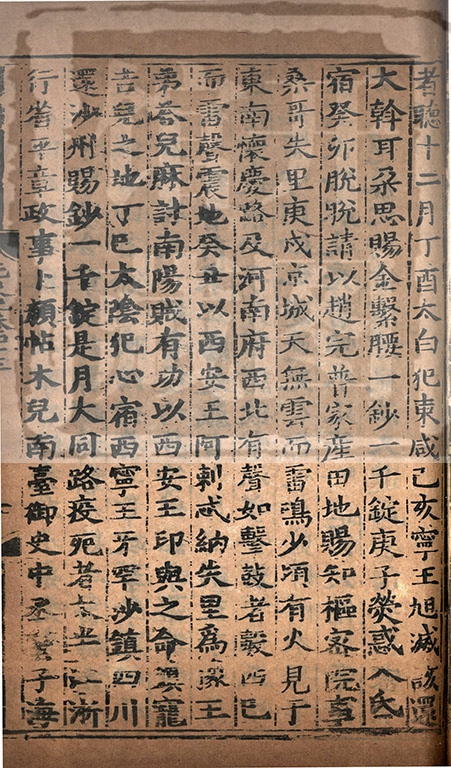 者聽十二月丁酉太白犯東咸己亥寧王旭滅該還
大斡耳朶思賜金繫腰一鈔一千錠庚子熒惑入氐
宿癸卯脫脫請以趙完普家産田地賜知樞密院事
桑哥失里庚戌京城天無雲而雷鳴少頃有火見于
東南懷慶路及河南府西北有聲如擊鼓者數四巳
而雷聲震地癸丑以西安王阿剌忒納失里爲豫王
弟荅兒麻討南陽賊有功以西安王印與之命鎮寵
吉兒之地丁巳太陰犯心宿西寧王牙罕沙鎮四川
還沙州賜鈔一千錠是月大同路疫死者太半江浙
行省平章政事卜顏帖木兒南臺御史中丞蠻子海